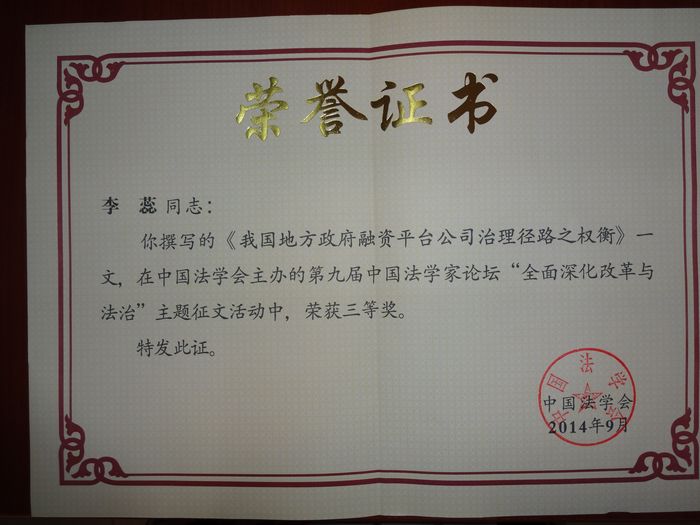 荣誉证书
李 蕊 同志：
你撰写的《我国地方政府融资平台公司治理径路之权衡》一
文，在中国法学会主办的第九届中国法学家论坛“全面深化改革与
法治”主题征文活动中，荣获三等奖。
特发此证。
中国法学会
中国法学会
2014年9月